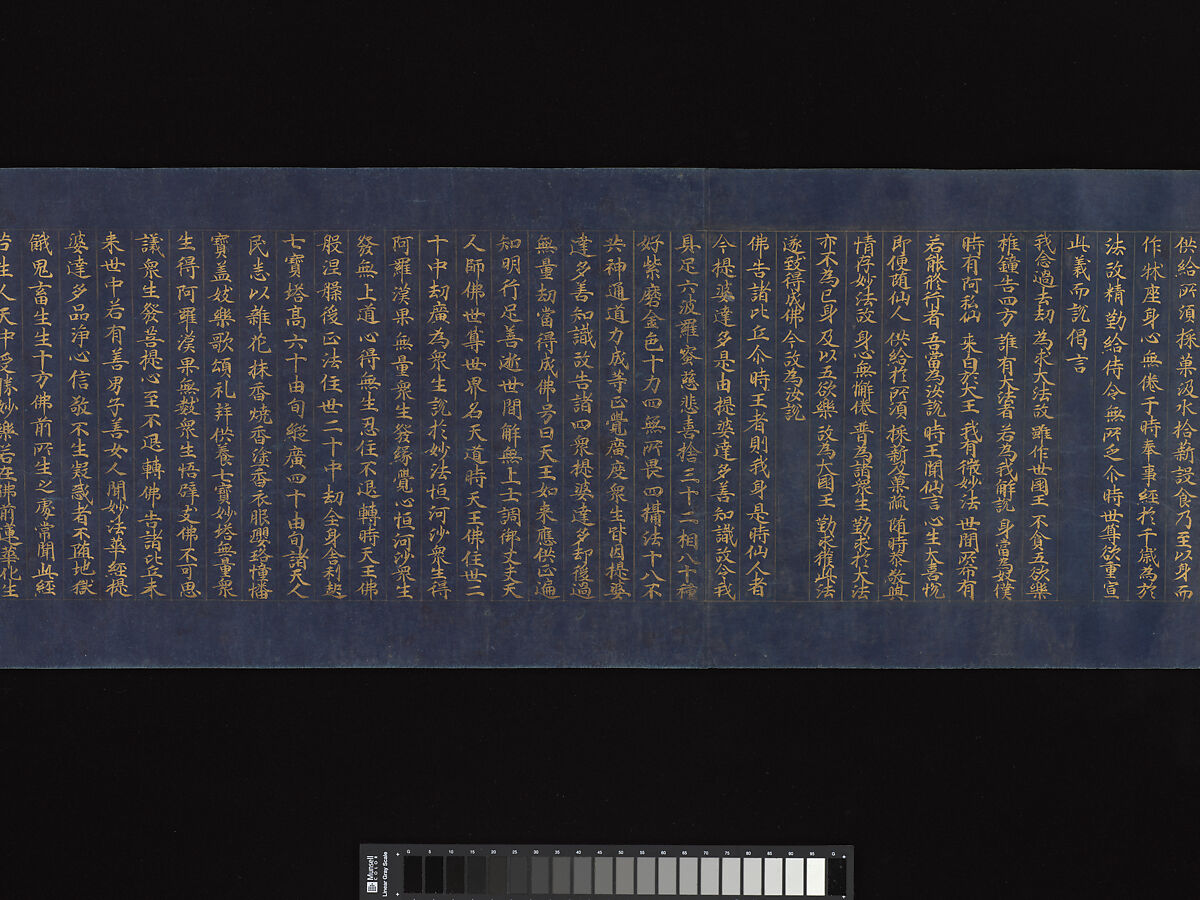 供給所須採菓汲水拾薪設食乃至以身而
作牀座身心無倦于時奉事經於千歳為於
法故精勤給侍令無所乏尒時世尊欲重宣
此義而説偈言
我念過去劫 為求大法故 雖作世國王 不貪五欲樂
椎鐘告四方 誰有大法者 若為我解説 身當為奴僕
時有阿私仙 来白於大王 我有微妙法 世間所希有
若能修行者 吾當為汝説 時王聞仙言 心生大喜悦
即便随仙人 供給於所須 採薪及菓蓏 随時恭敬與
情存妙法故 身心無懈倦 普為諸衆生 勤求於大法
亦不為己身 及以五欲樂 故為大國王 勤求獲此法
遂致得成佛 今故為汝説
佛告諸比丘尒時王者則我身是時仙人者
今提婆達多是由提婆達多善知識故令我
具足六波羅蜜慈悲喜捨三十二相八十種
好紫磨金色十力四無所畏四攝法十八不
共神通道力成等正覺廣度衆生皆因提婆
達多善知識故告諸四衆提婆達多却後過
無量劫當得成佛号曰天王如来應供正遍
知明行足善逝世間解無上士調御丈夫天
人師佛世尊世界名天道時天王佛住世二
十中劫廣為衆生説於妙法恒河沙衆生得
阿羅漢果無量衆生發縁覺心恒河沙衆生
發無上道心得無生忍住不退轉時天王佛
般涅槃後正法住世二十中劫全身舍利起
七寶塔髙六十由旬縱廣四十由旬諸天人
民悉以雜花抹香燒香塗香衣服瓔珞幢幡
寶盖妓樂歌頌礼拜供養七寶妙塔無量衆
生得阿羅漢果無數衆生悟辟支佛不可思
議衆生發菩提心至不退轉佛告諸比丘未
来世中若有善男子善女人聞妙法華經提
婆達多品淨心信敬不生疑惑者不堕地獄
餓鬼畜生生十方佛前所生之處常聞此經
若生人天中受勝妙樂若在佛前蓮華化生
Munsell COLOR
Linear Gray Scale
G 5 10 15 20 25 30 35 40 45 50 55 60 65 70 75 80 85 90 95 G